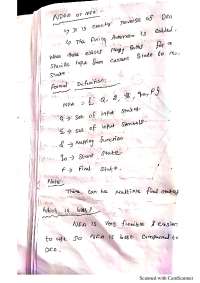 NDFA or NFA:-
↳ It is exactly reverse of DFA
↳ The Finite Automata is called
when there exists many paths for a
specific input from current state to next
state
Formal Definition:-
NFA = { Q, Σ, δ, q0, F}
Q → Set of input states
Σ → Set of input symbols
δ → Mapping Function
q0 → Start State
F → Final State.
Note:-
There can be multiple final states
Which is best?
NFA is very flexible & easier
to use so NFA is best compared to
DFA.
Scanned with CamScanner